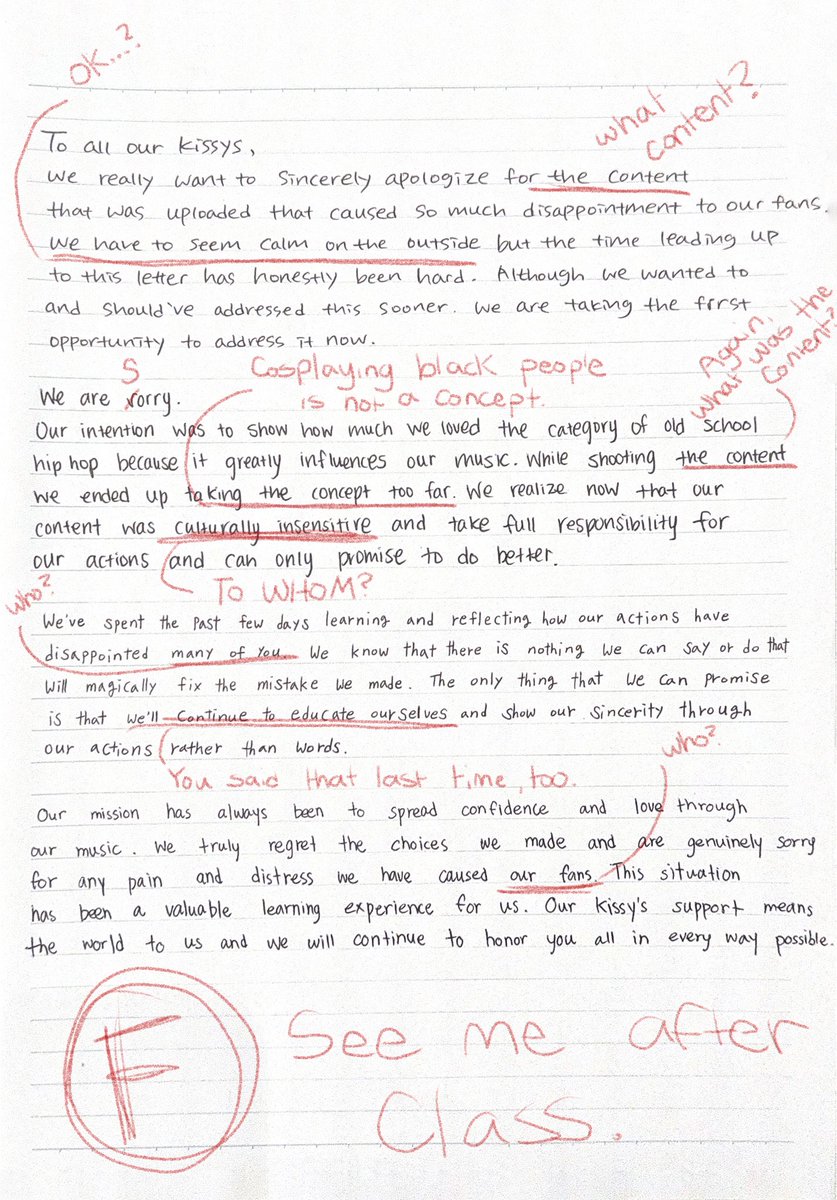 OK...?
what
content?
To all our kissys,
we really want to sincerely apologize for the content
that was uploaded that caused so much disappointment to our fans.
we have to seem calm on the outside but the time leading up
to this letter has honestly been hard. Although we wanted to
and should've addressed this sooner. we are taking the first
opportunity to address it now.
Again,
what was the
content?
S
Cosplaying black people
is not a concept.
We are rorry.
Our intention was to show how much we loved the category of old school
hip hop because it greatly influences our music. While shooting the content
we ended up taking the concept too far. We realize now that our
content was culturally insensitive and take full responsibility for
our actions and can only promise to do better.
To WHOM?
who?
We've spent the past few days learning and reflecting how our actions have
disappointed many of you. We know that there is nothing we can say or do that
will magically fix the mistake we made. The only thing that we can promise
is that we'll continue to educate ourselves and show our sincerity through
our actions rather than words.
who?
You said that last time, too.
Our mission has always been to spread confidence and love through
our music. We truly regret the choices we made and are genuinely sorry
for any pain and distress we have caused our fans. This situation
has been a valuable learning experience for us. Our kissy's support means
the world to us and we will continue to honor you all in every way possible.
F
See me after
Class.